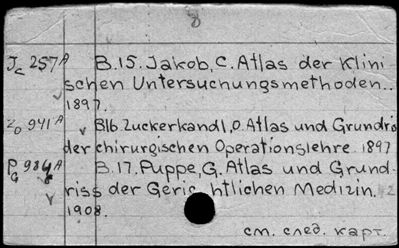 8
Jc 257A B.15. Jakob, C. Atlas der Klini
schen Untersuchungsmethoden..
1897.
Zo 941A B16. Zuckerkandl, O. Atlas und Grundriß
der chirurgischen Operationslehre. 1897
B. 17. Puppe, G. Atlas und Grund-
riss der Geric htlichen Medizin.
1908.
см. след. карт.